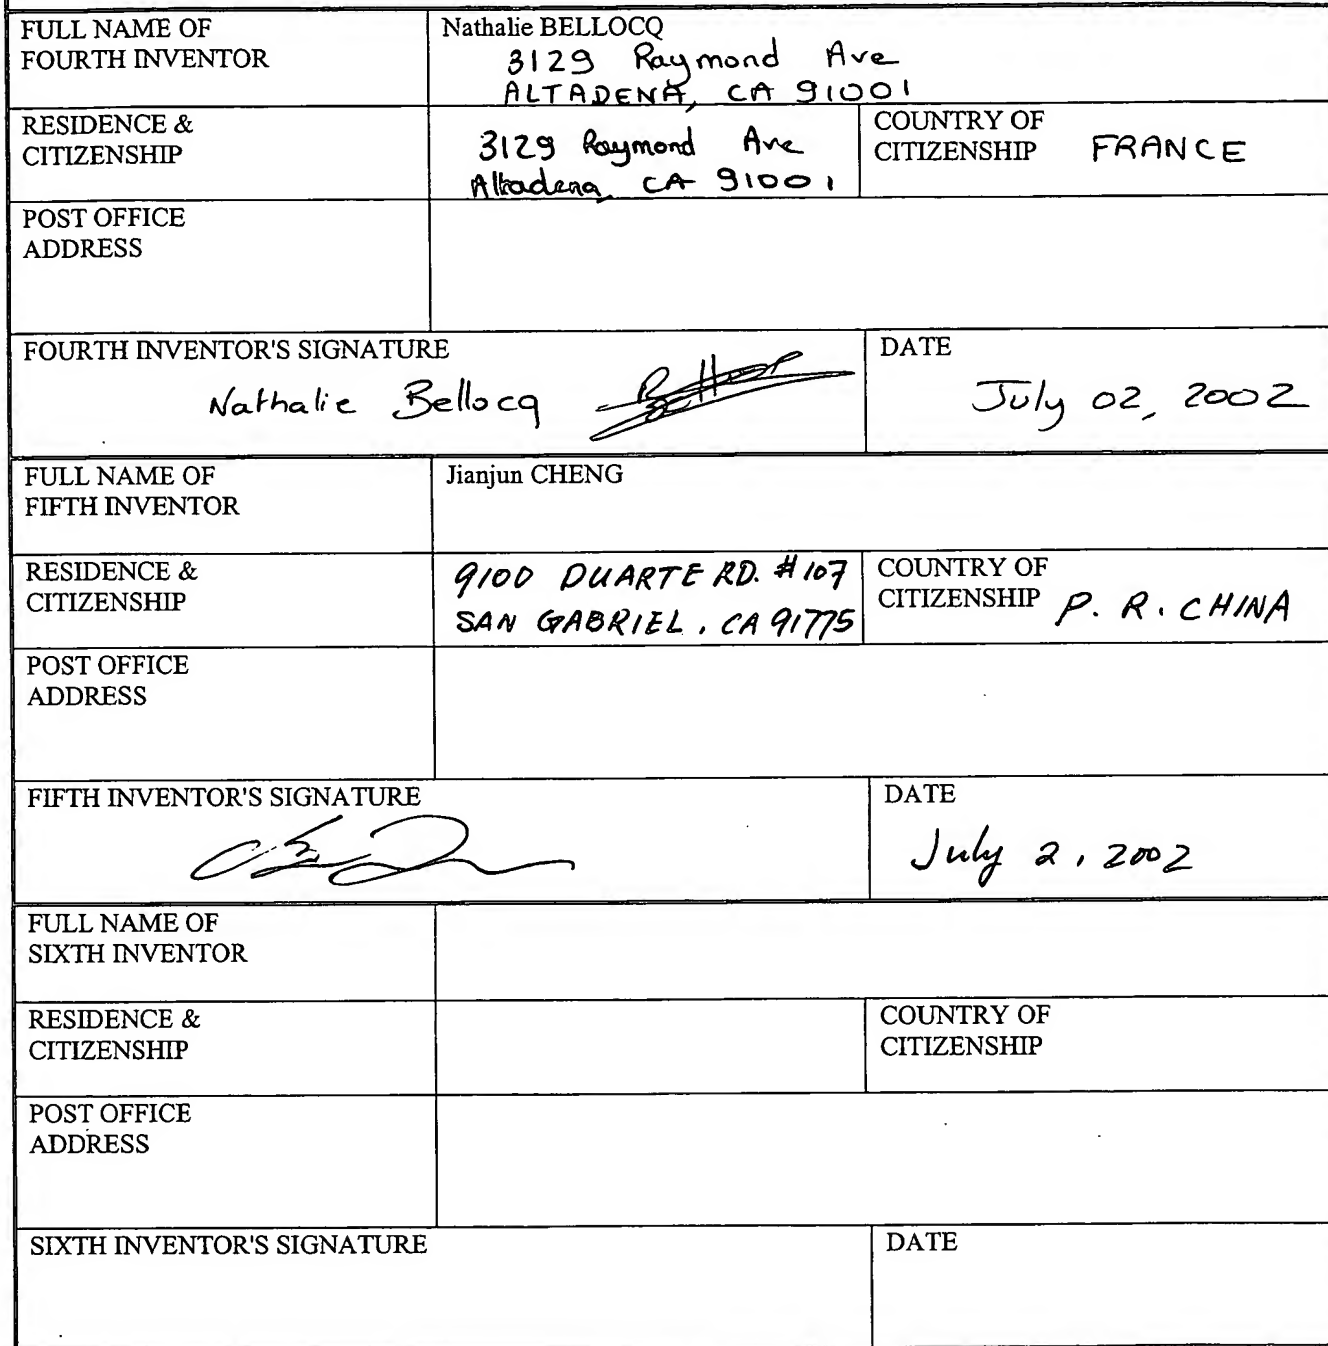 FULL NAME OF
FOURTH INVENTOR
Nathalie BELLOCQ
3129 Raymond Ave
ALTADENA, CA 91001
RESIDENCE &
CITIZENSHIP
3129 Raymond Ave
Altadena, CA 91001
COUNTRY OF
CITIZENSHIP FRANCE
POST OFFICE
ADDRESS
FOURTH INVENTOR'S SIGNATURE
Nathalie Bellocq
DATE
July 02, 2002
FULL NAME OF
FIFTH INVENTOR
Jianjun CHENG
RESIDENCE &
CITIZENSHIP
9100 DUARTE RD. #107
SAN GABRIEL, CA 91775
COUNTRY OF
CITIZENSHIP P. R. CHINA
POST OFFICE
ADDRESS
FIFTH INVENTOR'S SIGNATURE
DATE
July 2, 2002
FULL NAME OF
SIXTH INVENTOR
RESIDENCE &
CITIZENSHIP
COUNTRY OF
CITIZENSHIP
POST OFFICE
ADDRESS
SIXTH INVENTOR'S SIGNATURE
DATE